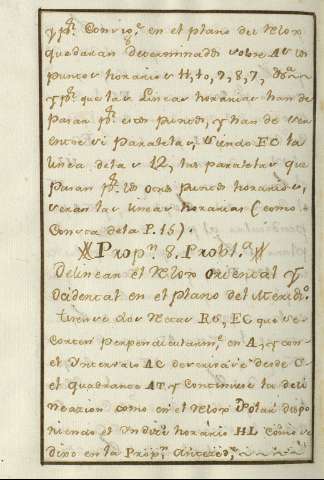 y pr. Conviog.e en el plano del Relox
quedarán determinados sobre AT los
puntos horarios 11, 10, 9, 8, 7, &a
y pr. que las Lineas horarias han de
pasar pr. estos puntos, y han de ser
entre si Paralelas, siendo EC la
linea de las 12, las paralelas que
pasan pr. los otros puntos horarios,
seran las lineas horarias (como
Consta de la P. 15).
Propn. 8. Probla.
Delinear el Relox Oriental y
Ocidental en el plano del Meridio.
Tirense dos rectas RG, EC que se
corten perpendicularme. en A, y con
el Intervalo AC descrivase desde C
el quadrante AT, y Continuese la deli
neazion como en el Relox Polar dispo
niendo el Indice horario HL como se
dixo en la Propn. Antecede.